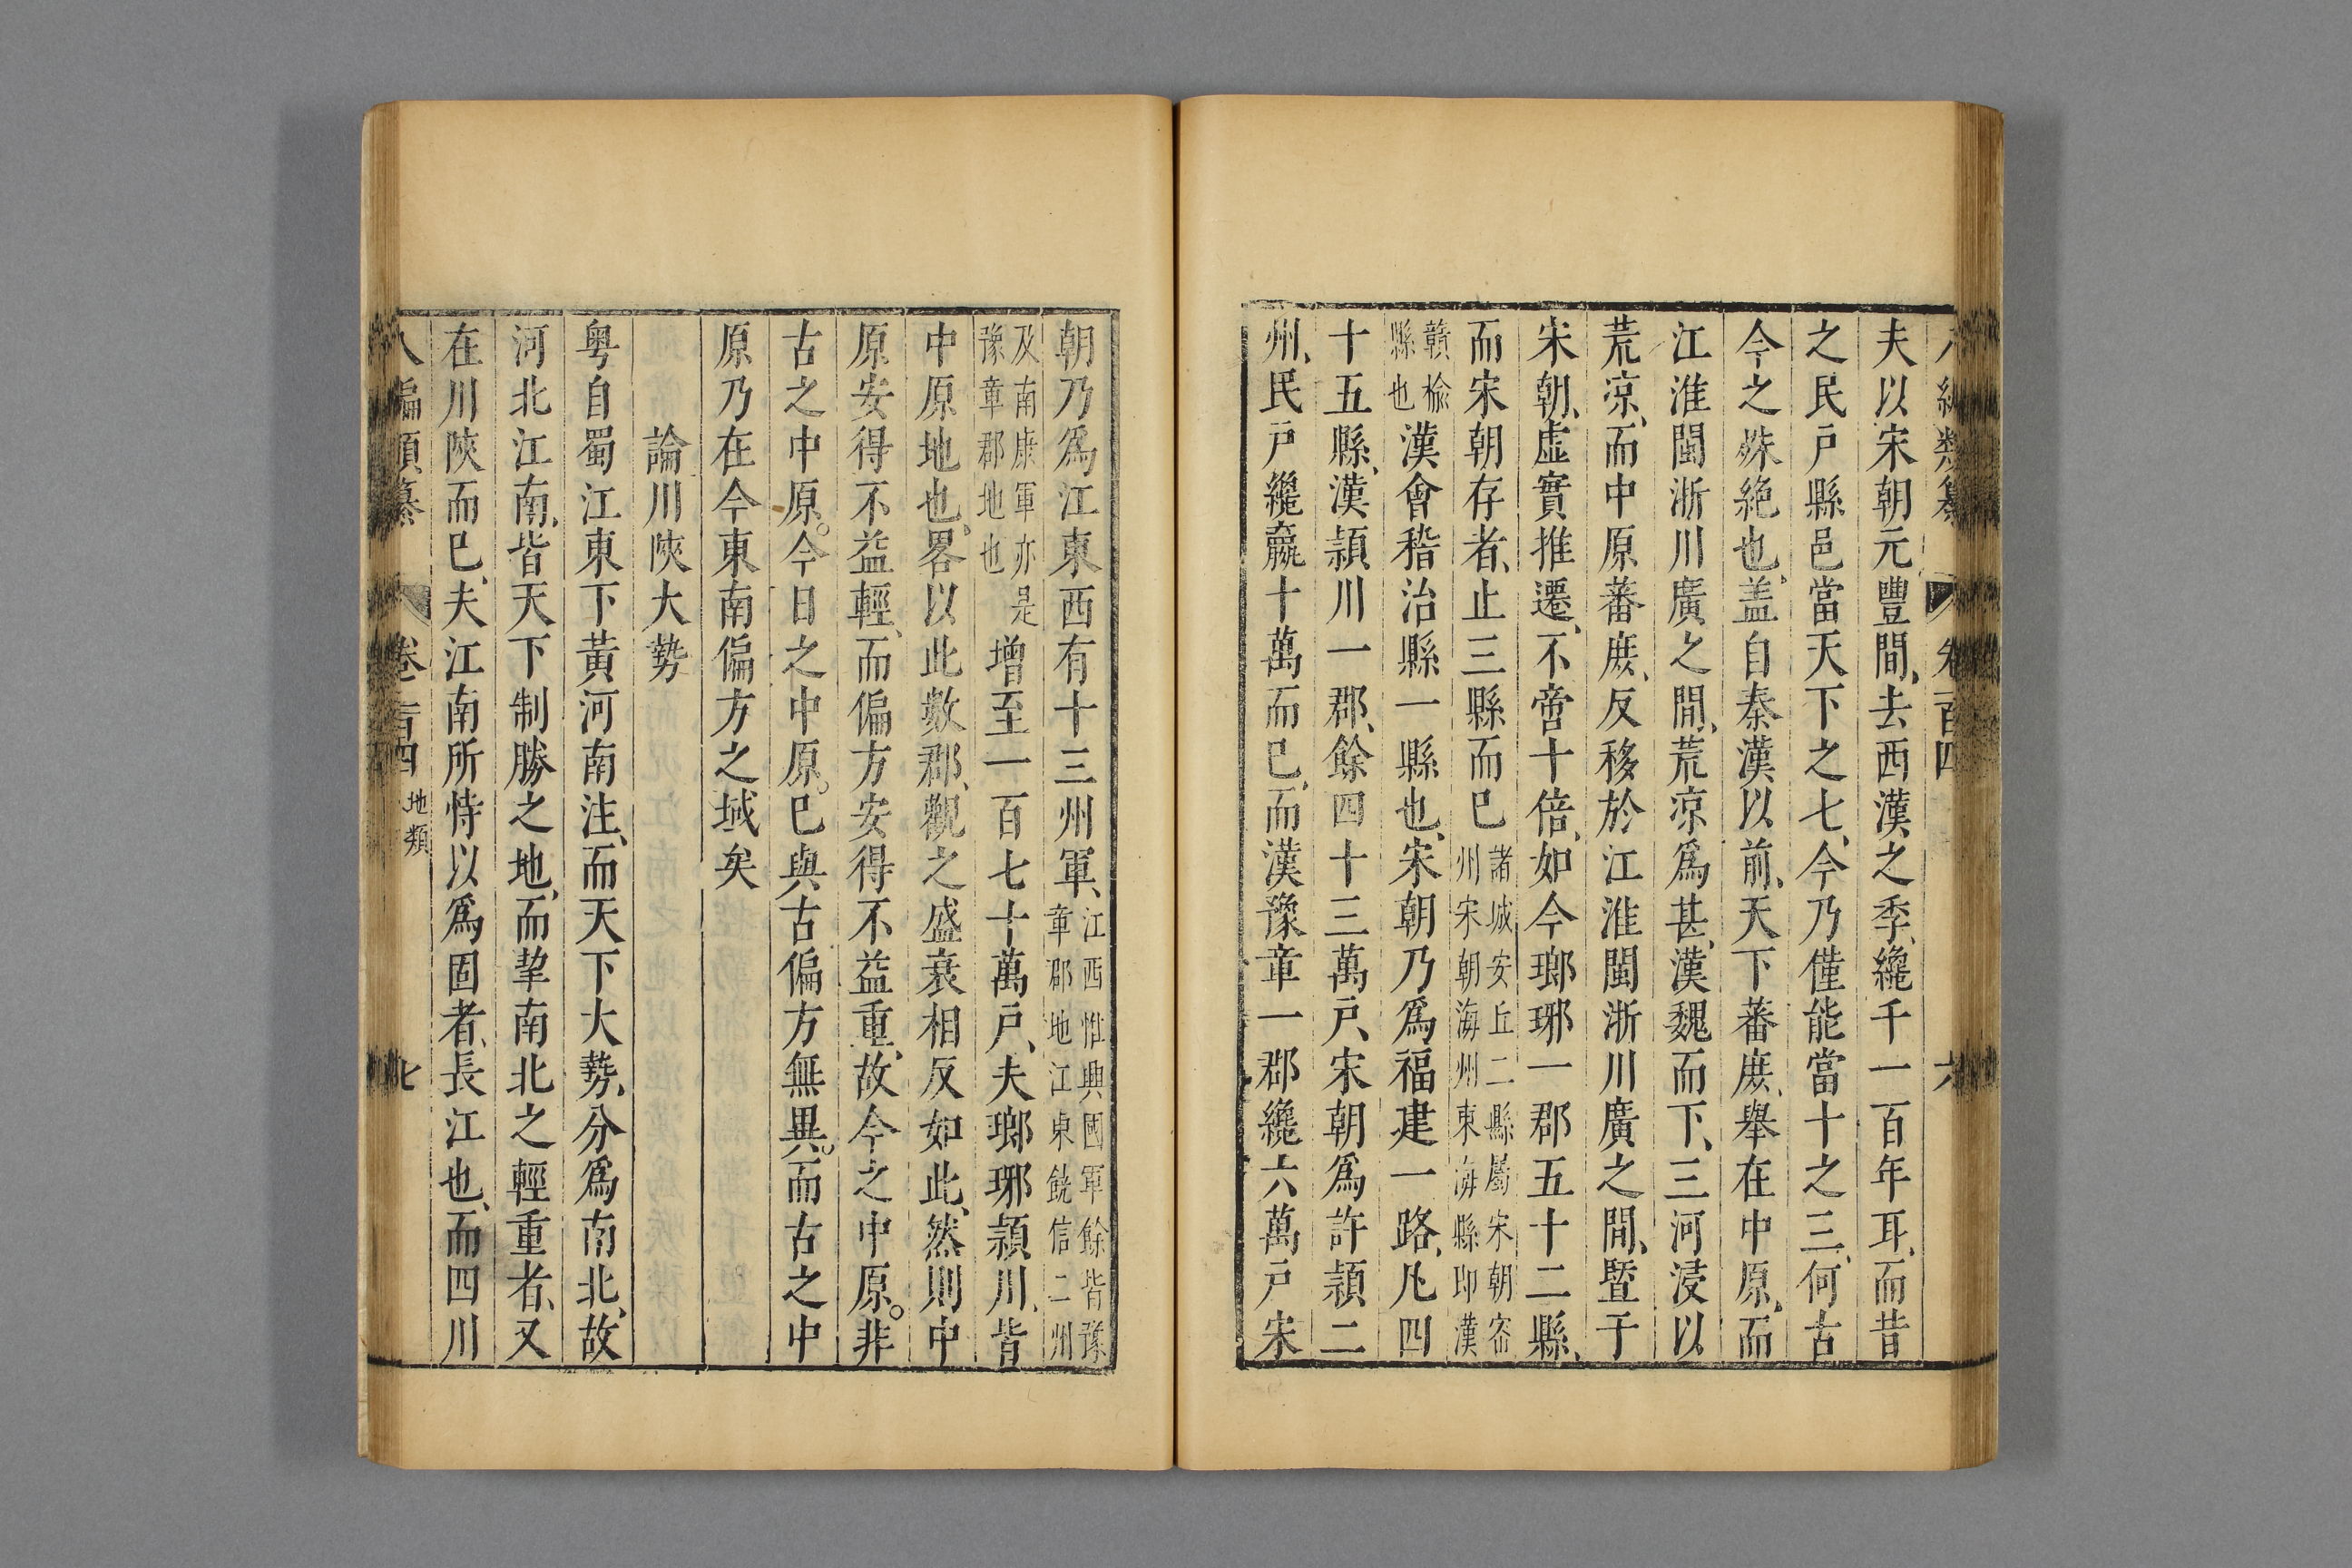 夫以宋朝元豐間、去西漢之季、纔千一百年耳、而昔
之民戸縣邑當天下之七、今乃僅能當十之三、何古
今之殊絶也、盖自秦漢以前、天下蕃庶、舉在中原、而
江淮閩浙川廣之間、荒凉爲甚、漢魏而下、三河浸以
荒凉、而中原蕃庶、反移於江淮閩浙川廣之間、曁于
宋朝、虚實推遷、不啻十倍、如今瑯琊一郡五十二縣、
而宋朝存者、止三縣而已諸城安丘二縣屬宋朝密州宋朝海州東海縣即漢
贛榆縣也漢會稽治縣一縣也、宋朝乃爲福建一路、凡四
十五縣、漢潁川一郡、餘四十三萬戸、宋朝爲許潁二
州、民戸纔嬴十萬而已、而漢豫章一郡纔六萬戸宋
朝乃爲江東西有十三州軍、江西惟興國軍餘皆豫章郡地江東饒信二州
及南康軍亦是豫章郡地也增至一百七十萬戸、夫瑯琊潁川、皆
中原地也、畧以此數郡、觀之盛衰相反如此、然則中
原安得不益輕、而偏方安得不益重、故今之中原。非
古之中原。今日之中原。已與古偏方無異。而古之中
原乃在今東南偏方之域矣
論川陝大勢
粤自蜀江東下黃河南注、而天下大勢、分爲南北、故
河北江南、皆天下制勝之地、而挈南北之輕重者、又
在川陝而已、夫江南所恃以爲固者、長江也、而四川
八編類纂 卷一百四 地類 七